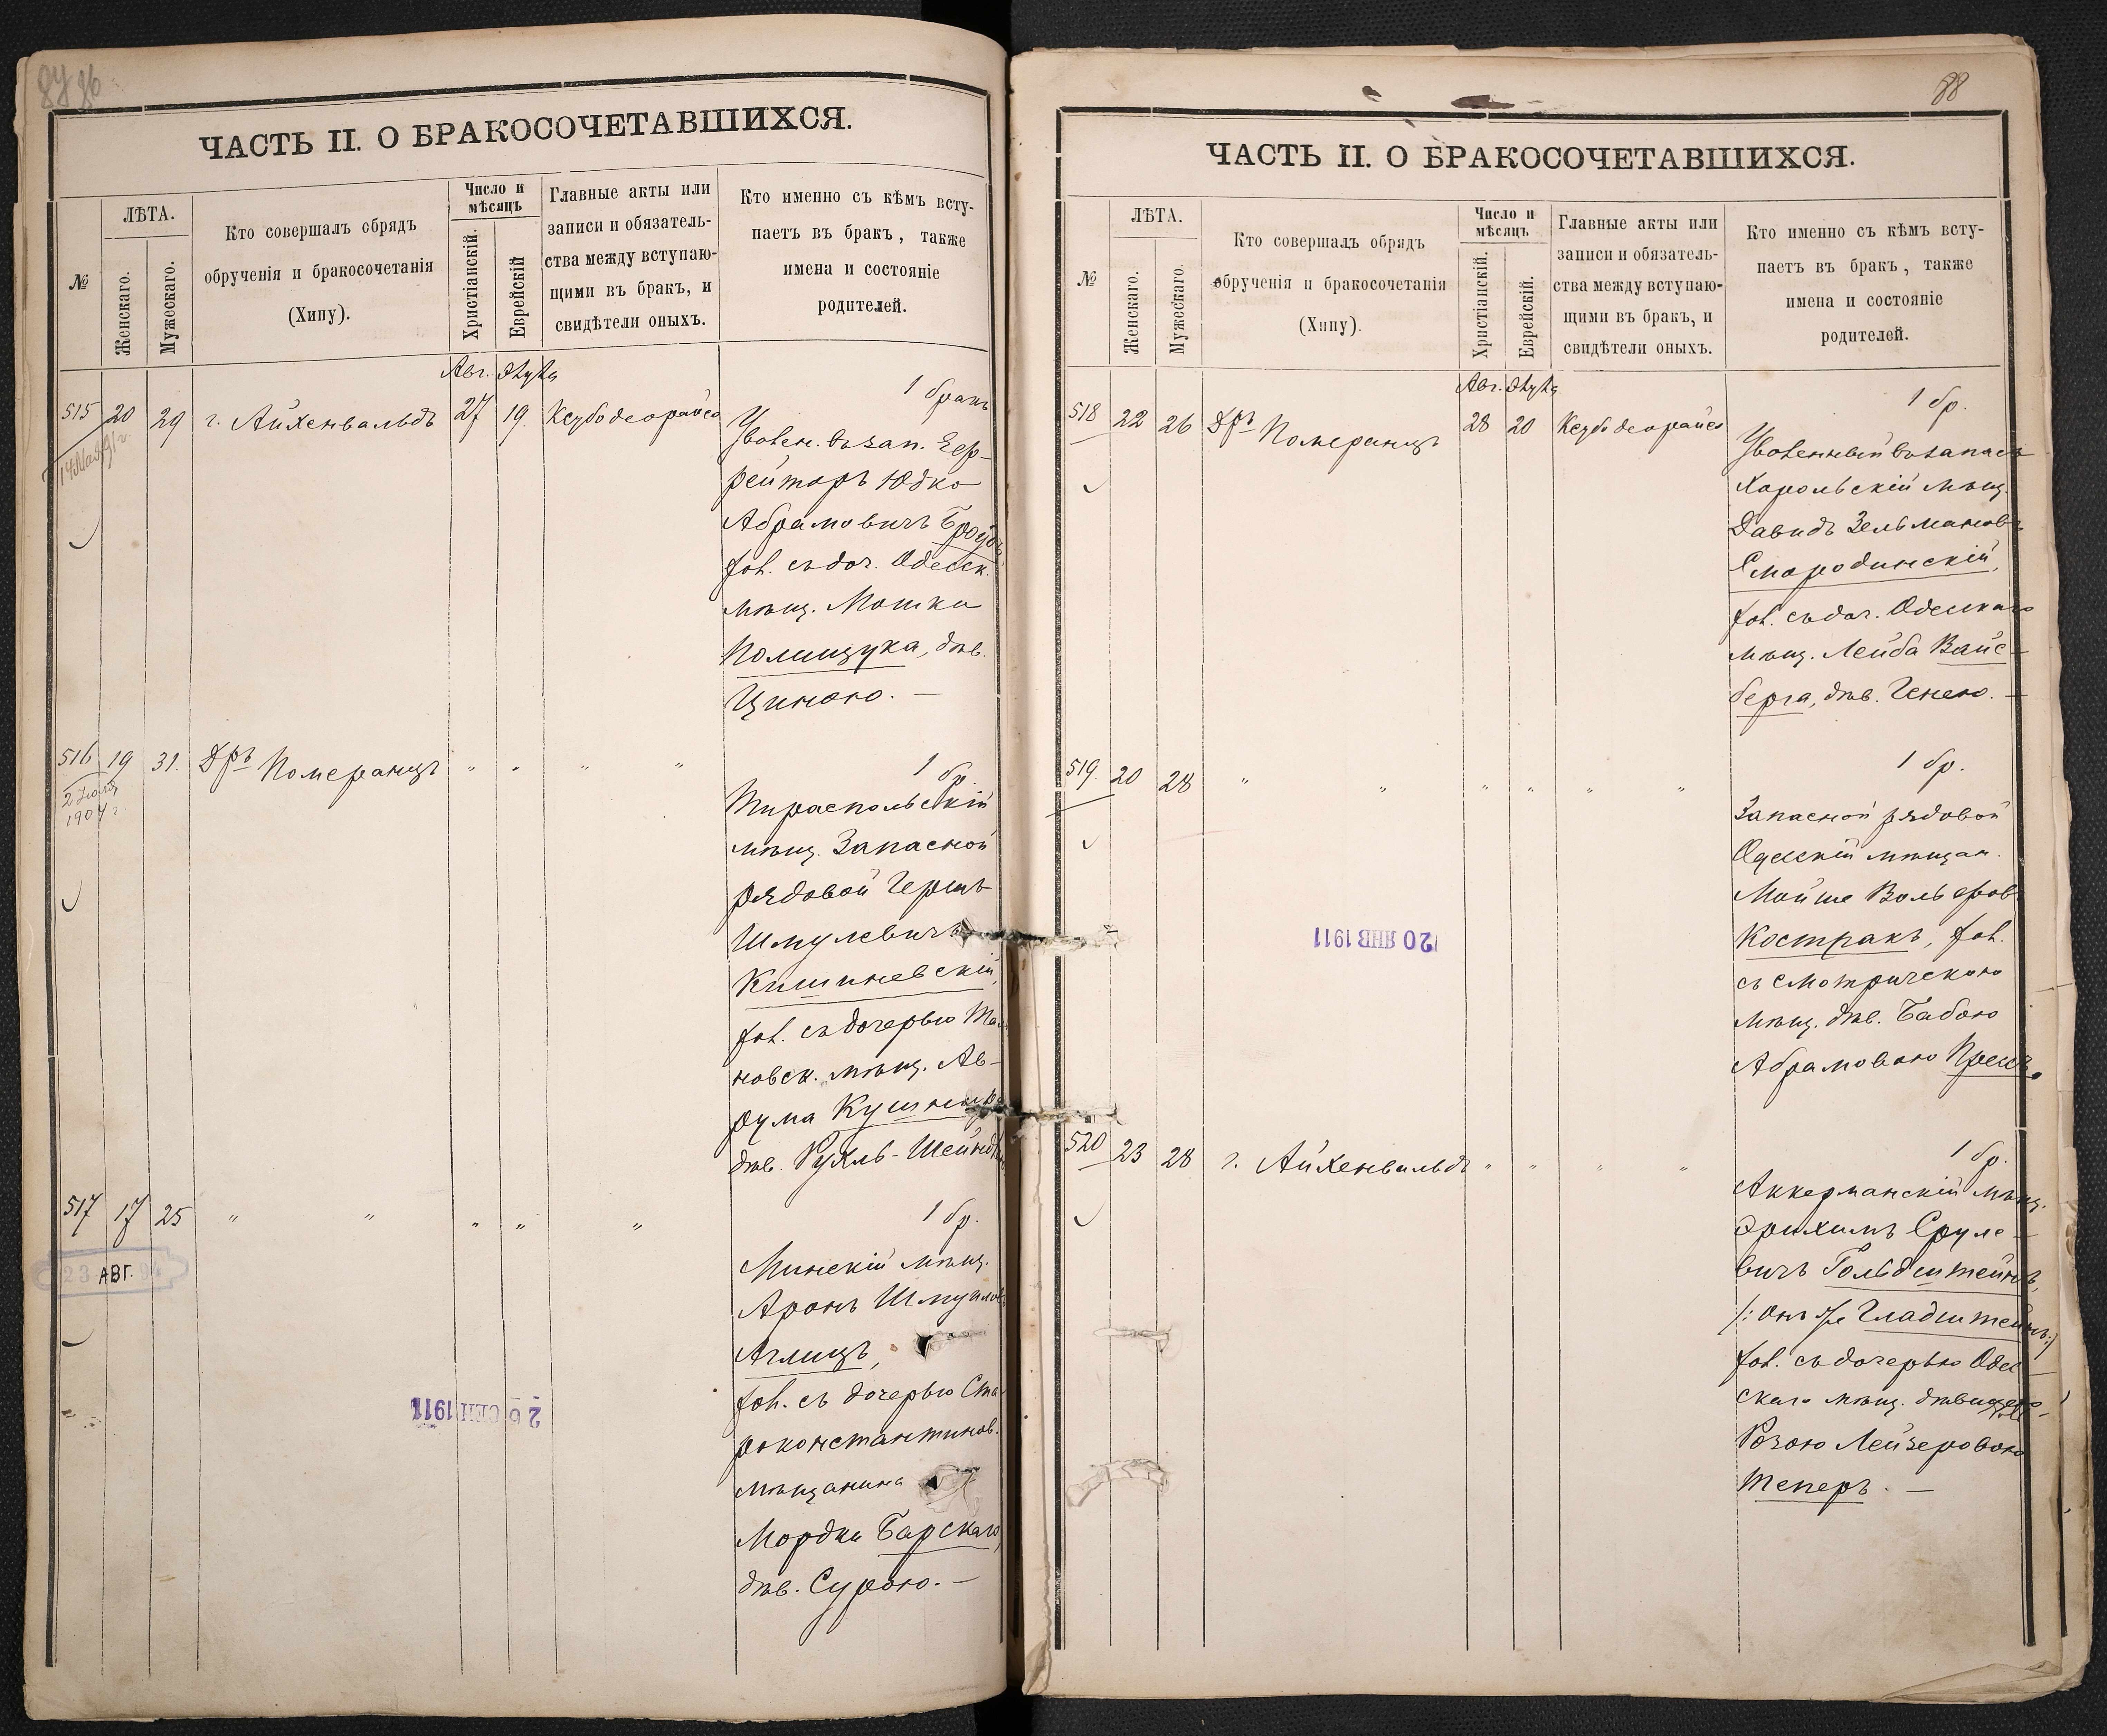 88
ЧАСТЬ II. О БРАКОСОЧЕТАВШИХСЯ.
№
ЛѢТА.
Женскаго.
Мужескаго.
Кто совершалъ обрядъ
обрученія и бракосочетанія
(Хипу).
Число и
мѣсяцъ
Христіанскій.
Еврейскій
Главные акты или
записи и обязатель-
ства между вступаю-
щими въ бракъ, и
свидѣтели оныхъ.
Кто именно съ кѣмъ всту-
паетъ въ бракъ, также
имена и состояніе
родителей.
Авг.
515 20 29 г. Айхенвальдъ 27 19. Ксубо деорайсо
1 бракъ
Уволен. въ зап. Еф-
рейторъ Юдко
Абрамовичъ
съ доч. Одесск.
мѣщ. Мошки
Полищука, дѣв.
Циною. —
516 19 31. Дръ Померанцъ " " " "
2 Іюля
1904 г.
1 бр.
Тираспольскій
мѣщ. Запасной
рядовой Гершъ
Шмулевичъ
Кишиневскій,
съ дочерью
новск. мѣщ. Ав-
рума
дѣв. Рухль-
517 17 25 " " " " "
АВГ.
1 бр.
Минскій мѣщ.
Аронъ
Аглицъ,
съ дочерью Ста-
роконстантинов.
мѣщанина
Мордки Барскаго,
дѣв. Сурою. —
26 СЕН 1911
88
ЧАСТЬ II. О БРАКОСОЧЕТАВШИХСЯ.
№
ЛѢТА.
Женскаго.
Мужескаго.
Кто совершалъ обрядъ
обрученія и бракосочетанія
(Хипу).
Число и
мѣсяцъ
Христіанскій.
Еврейскій.
Главные акты или
записи и обязатель-
ства между вступаю-
щими въ бракъ, и
свидѣтели оныхъ.
Кто именно съ кѣмъ всту-
паетъ въ бракъ, также
имена и состояніе
родителей.
Авг.
518 22 26 Дръ Померанцъ 28 20 Ксубо деорайсо
1 бр.
Уволенный въ запасъ
Хорольскій мѣщ.
Давидъ Зельмановъ
Смородинскій,
съ доч. Одесскаго
мѣщ. Лейба Вайс-
берга, дѣв. Генею. —
519. 20 28 " " " " " "
1 бр.
Запасной рядовой
Одесскій мѣщан.
Мойше Вольфов.
Кострихъ,
съ Смотричскою
мѣщ. дѣв. Бабою
Абрамовою
20 ЯНВ 1911
520 23 28 г. Айхенвальдъ " " " "
1 бр.
Аккерманскій мѣщ.
Эрихимъ Сруле-
вичъ Гольдштейнъ,
/: онъ же Гладштейнъ:/
съ дочерью Одес-
скаго мѣщ. дѣвицею
Розою Лейзеровою
Теперъ. —